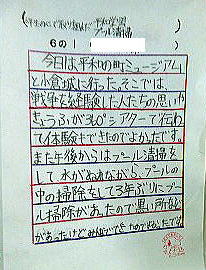 平和学習
プール清掃
6の1
今日は平和の町ミュージアム
と小倉城に行った。そこでは、
戦争を経験した人たちの思いや
きょうふが3Dシアターで行わ
て体験もできたのでよかったです。
また午後からはプール清掃を
して水がぬきながら、プールの
中の掃除をして3年ぶりにプー
ル掃除があったので黒い所など
があったけどみんなで